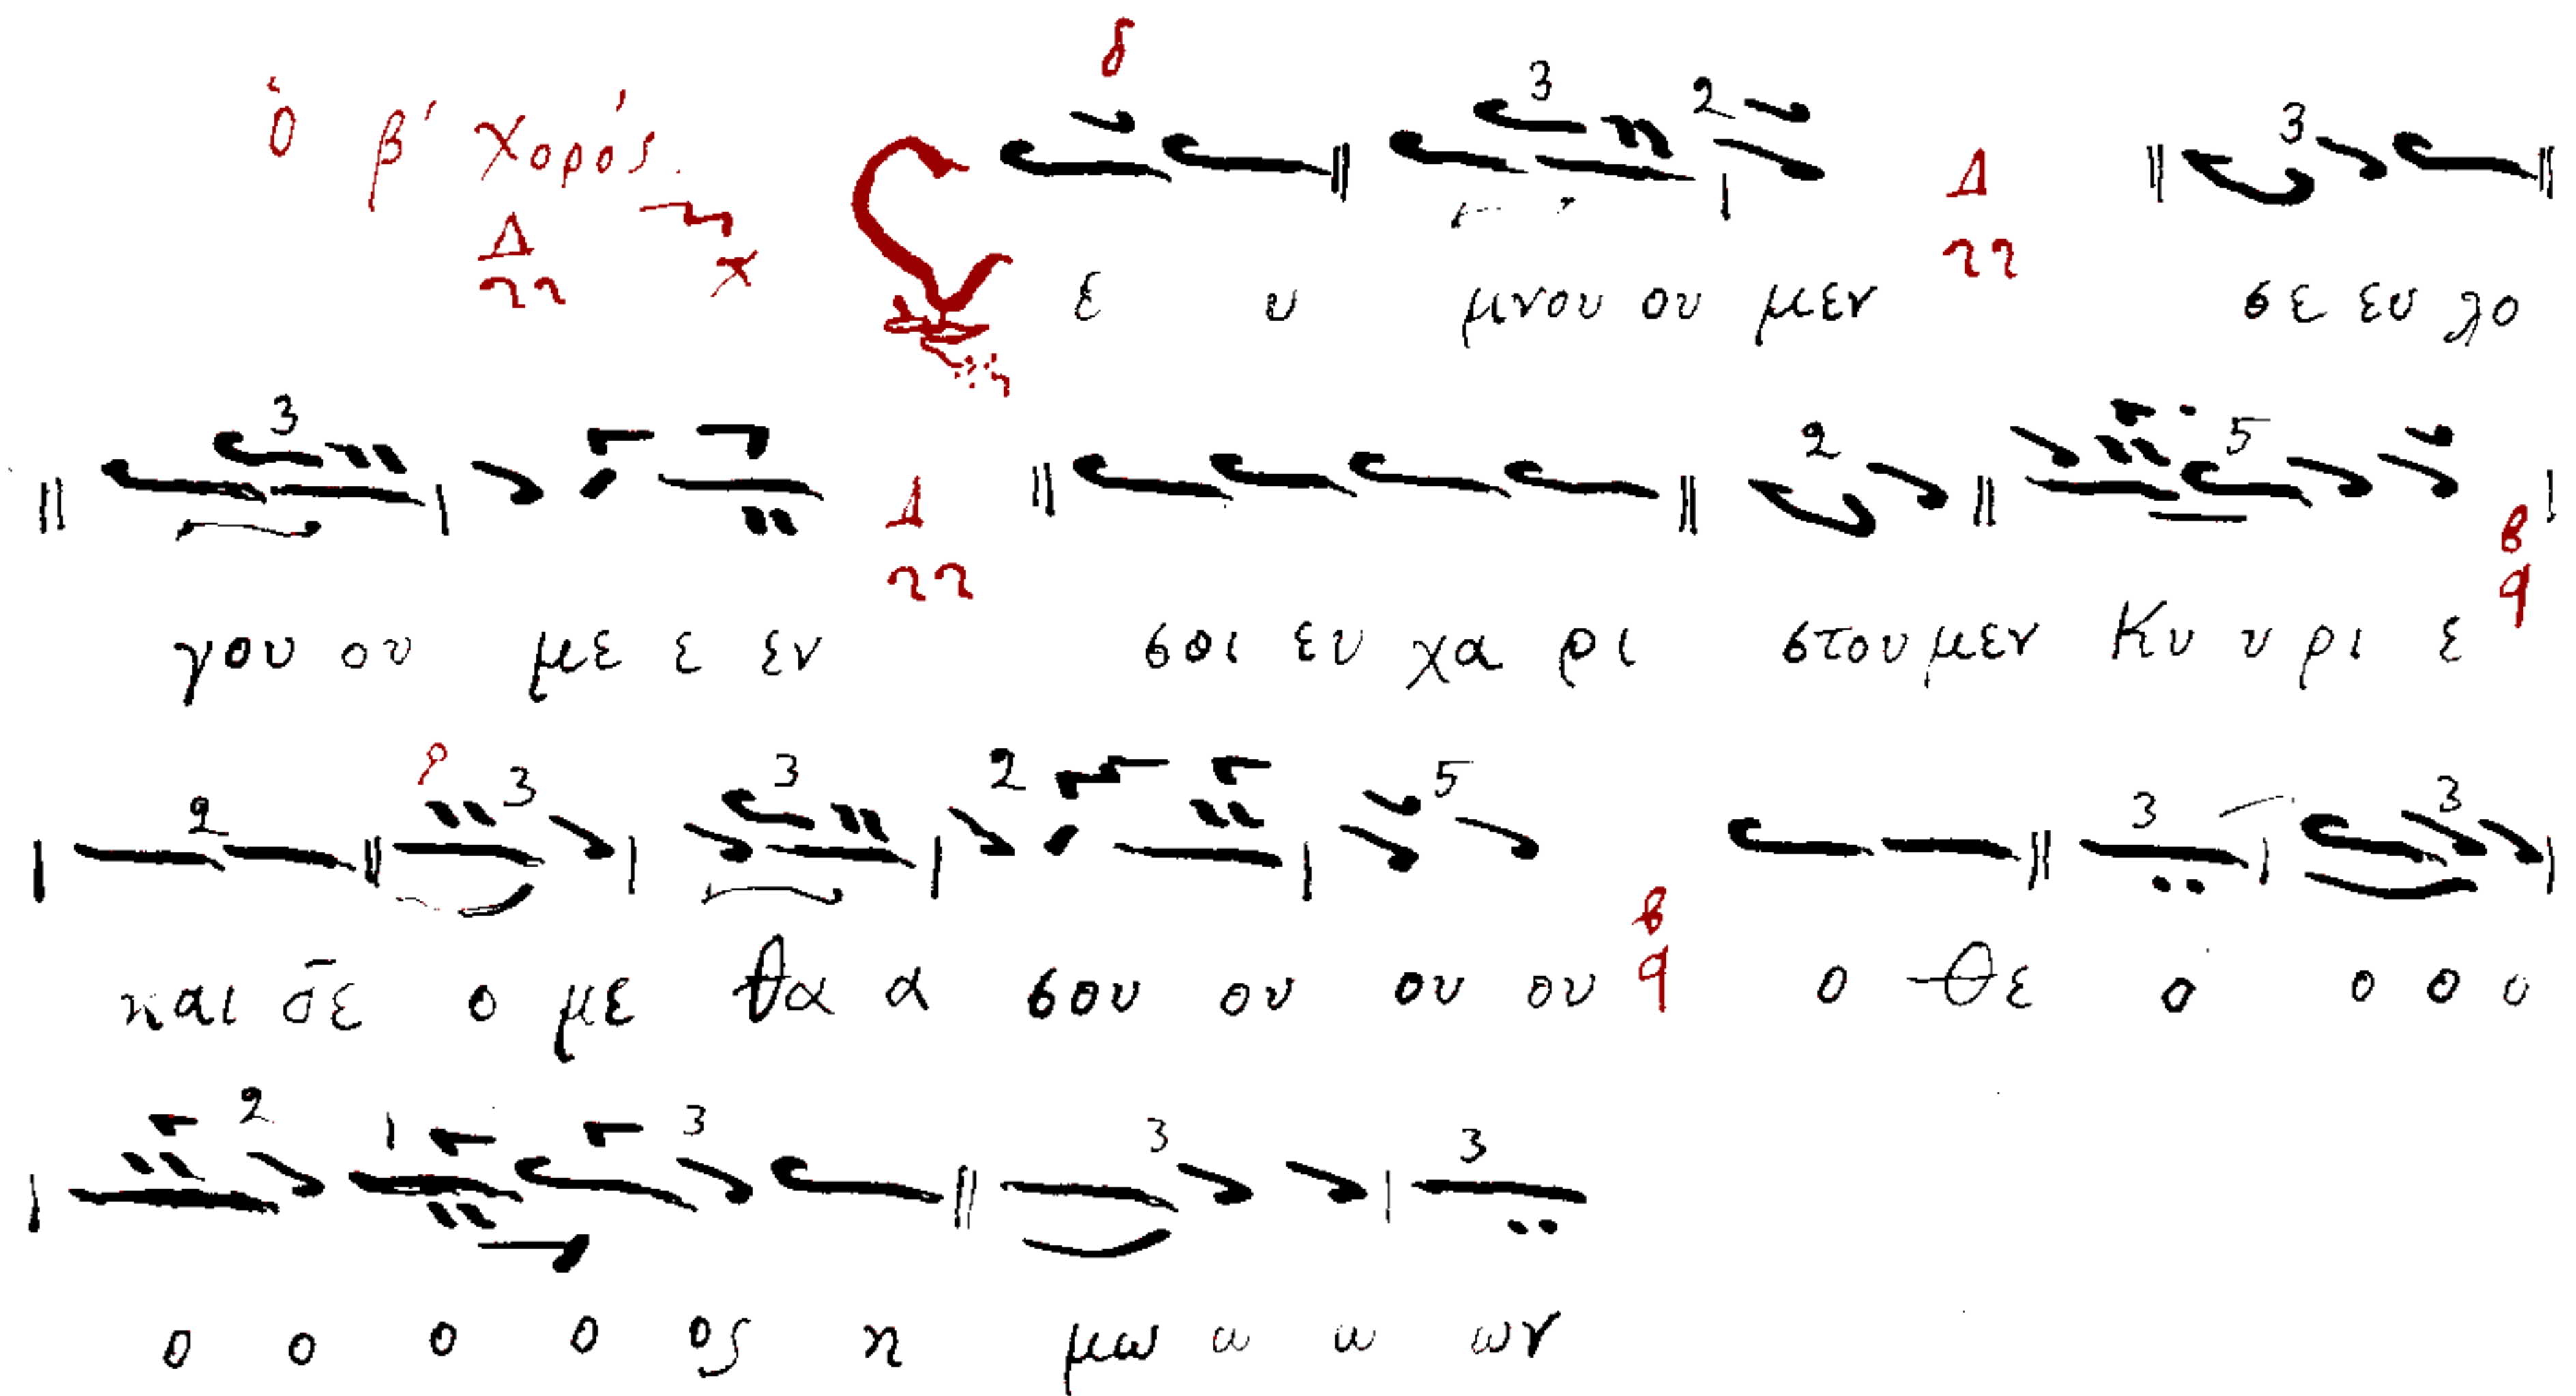 Ὁ β΄ χορός.
Σε υ μνου ου μεν σε ευ λο
γου ου με ε εν σοι ευ χα ρι στου μεν Κυ υ ρι ε
και δε ο με θα α σου ου ου ου ο Θε ο ο ο ο
ο ο ο ο ος η μω ω ω ων